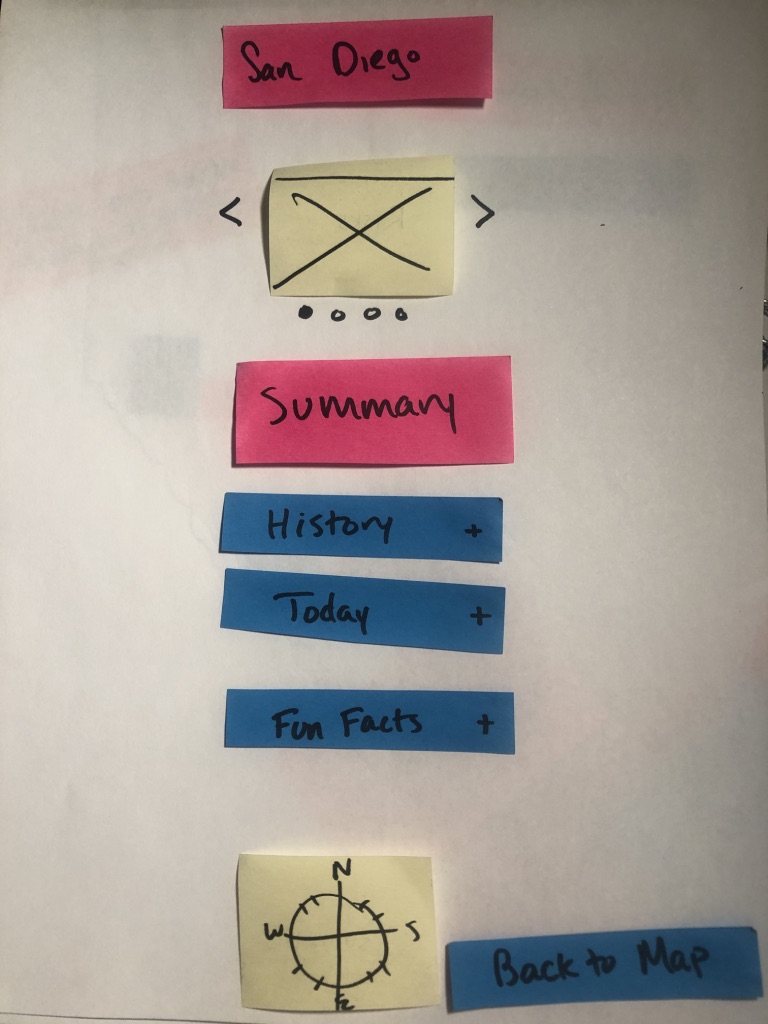 San Diego
< >
Summary
History +
Today +
Fun Facts +
N
W S
E
Back to Map